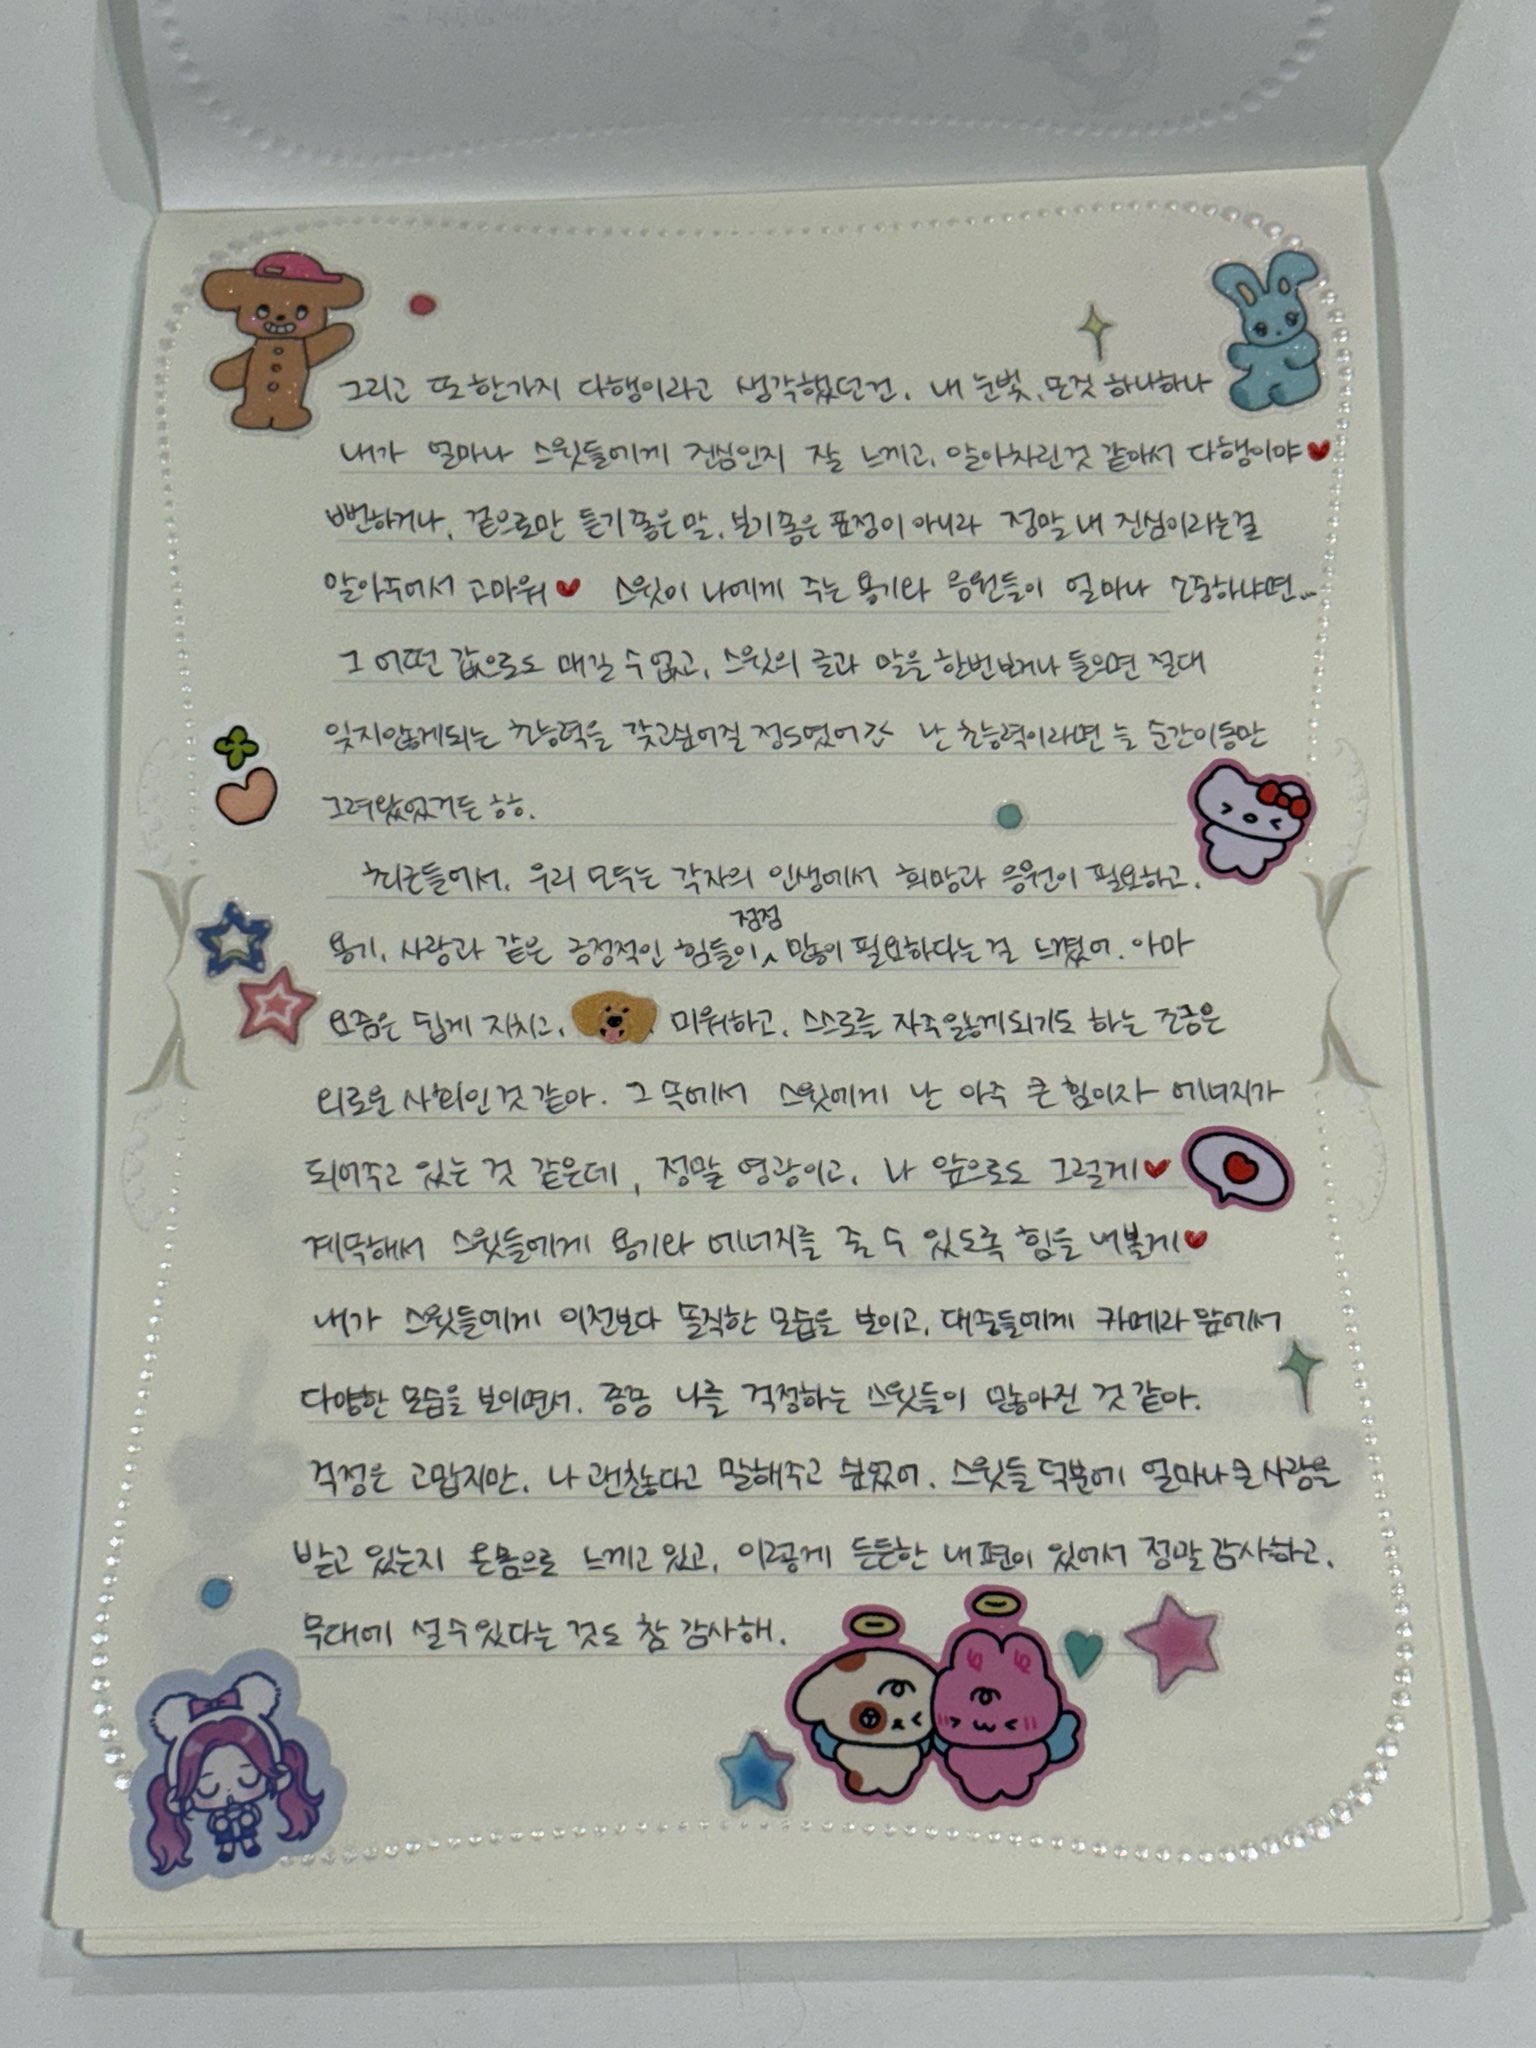 그리고 또 한가지 다행이라고 생각했던건, 내 눈빛, 모든것 하나하나
내가 얼마나 스윗들에게 진심인지 잘 느끼고, 알아차린것 같아서 다행이야♥
뻔하거나, 겉으로만 듣기좋은 말, 보기좋은 표정이 아니라 정말 내 진심이라는걸
알아주어서 고마워♥ 스윗이 나에게 주는 용기와 응원들이 얼마나 소중하냐면...
그 어떤 값으로도 매길 수 없고, 스윗의 글과 말을 한번 보거나 들으면 절대
잊지않게되는 초능력을 갖고싶어질 정도였어 난 초능력이라면 늘 순간이동만
그려왔었거든 ㅎㅎ.
최근들어서, 우리 모두는 각자의 인생에서 희망과 응원이 필요하고,
용기, 사랑과 같은 긍정적인 힘들이 점점 많이 필요하다는 걸 느꼈어. 아마
요즘은 쉽게 지치고, 미워하고, 스스로를 자주잃게되기도 하는 조금은
외로운 사회인것 같아. 그 속에서 스윗에게 난 아주 큰 힘이자 에너지가
되어주고 있는 것 같은데, 정말 영광이고, 나 앞으로도 그럴게♥
계속해서 스윗들에게 용기와 에너지를 줄 수 있도록 힘을 내볼게♥
내가 스윗들에게 이전보다 솔직한 모습을 보이고, 대중들에게 카메라 앞에서
다양한 모습을 보이면서, 종종 나를 걱정하는 스윗들이 많아진 것 같아.
걱정은 고맙지만, 나 괜찮다고 말해주고 싶었어. 스윗들 덕분에 얼마나 큰 사랑을
받고 있는지 온몸으로 느끼고 있고, 이렇게 든든한 내편이 있어서 정말 감사하고,
무대에 설 수 있다는 것도 참 감사해.